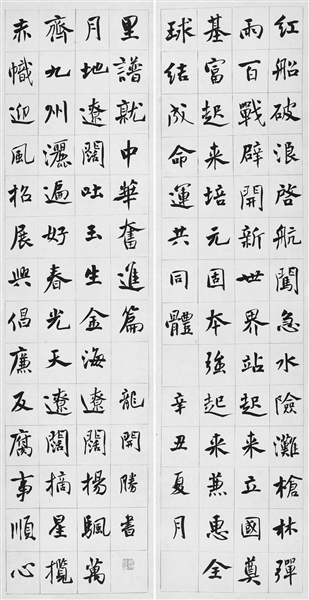 紅船破浪啓航闖急水險灘槍林彈
雨百戰辟開新世界站起来立國奠
基富起来培元固本强起来兼惠全
球結成命運共同體 辛丑夏月
赤幟迎風招展興倡廉反腐事順心
齊九州灑遍好春光天遼闊摘星攬
月地遼闊吐玉生金海遼闊揚颿萬
里譜就中華奮進篇 龍開勝書